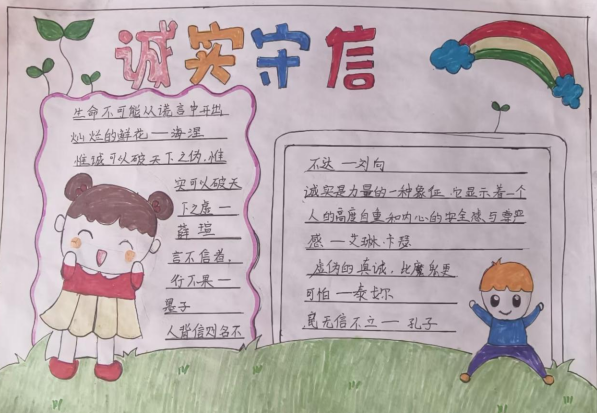 诚实守信
生命不可能从谎言中开出
灿烂的鲜花一海涅
惟诚可以破天下之伪，惟
实可以破天
下之虚一
薛瑄
言不信者，
行不果一
墨子
人背信则名不
不达一刘向
诚实是力量的一种象征，它显示着一个
人的高度自重和内心的安全感与尊严
感一艾琳·卡瑟
虚伪的真诚，比魔鬼更
可怕一泰戈尔
民无信不立一孔子